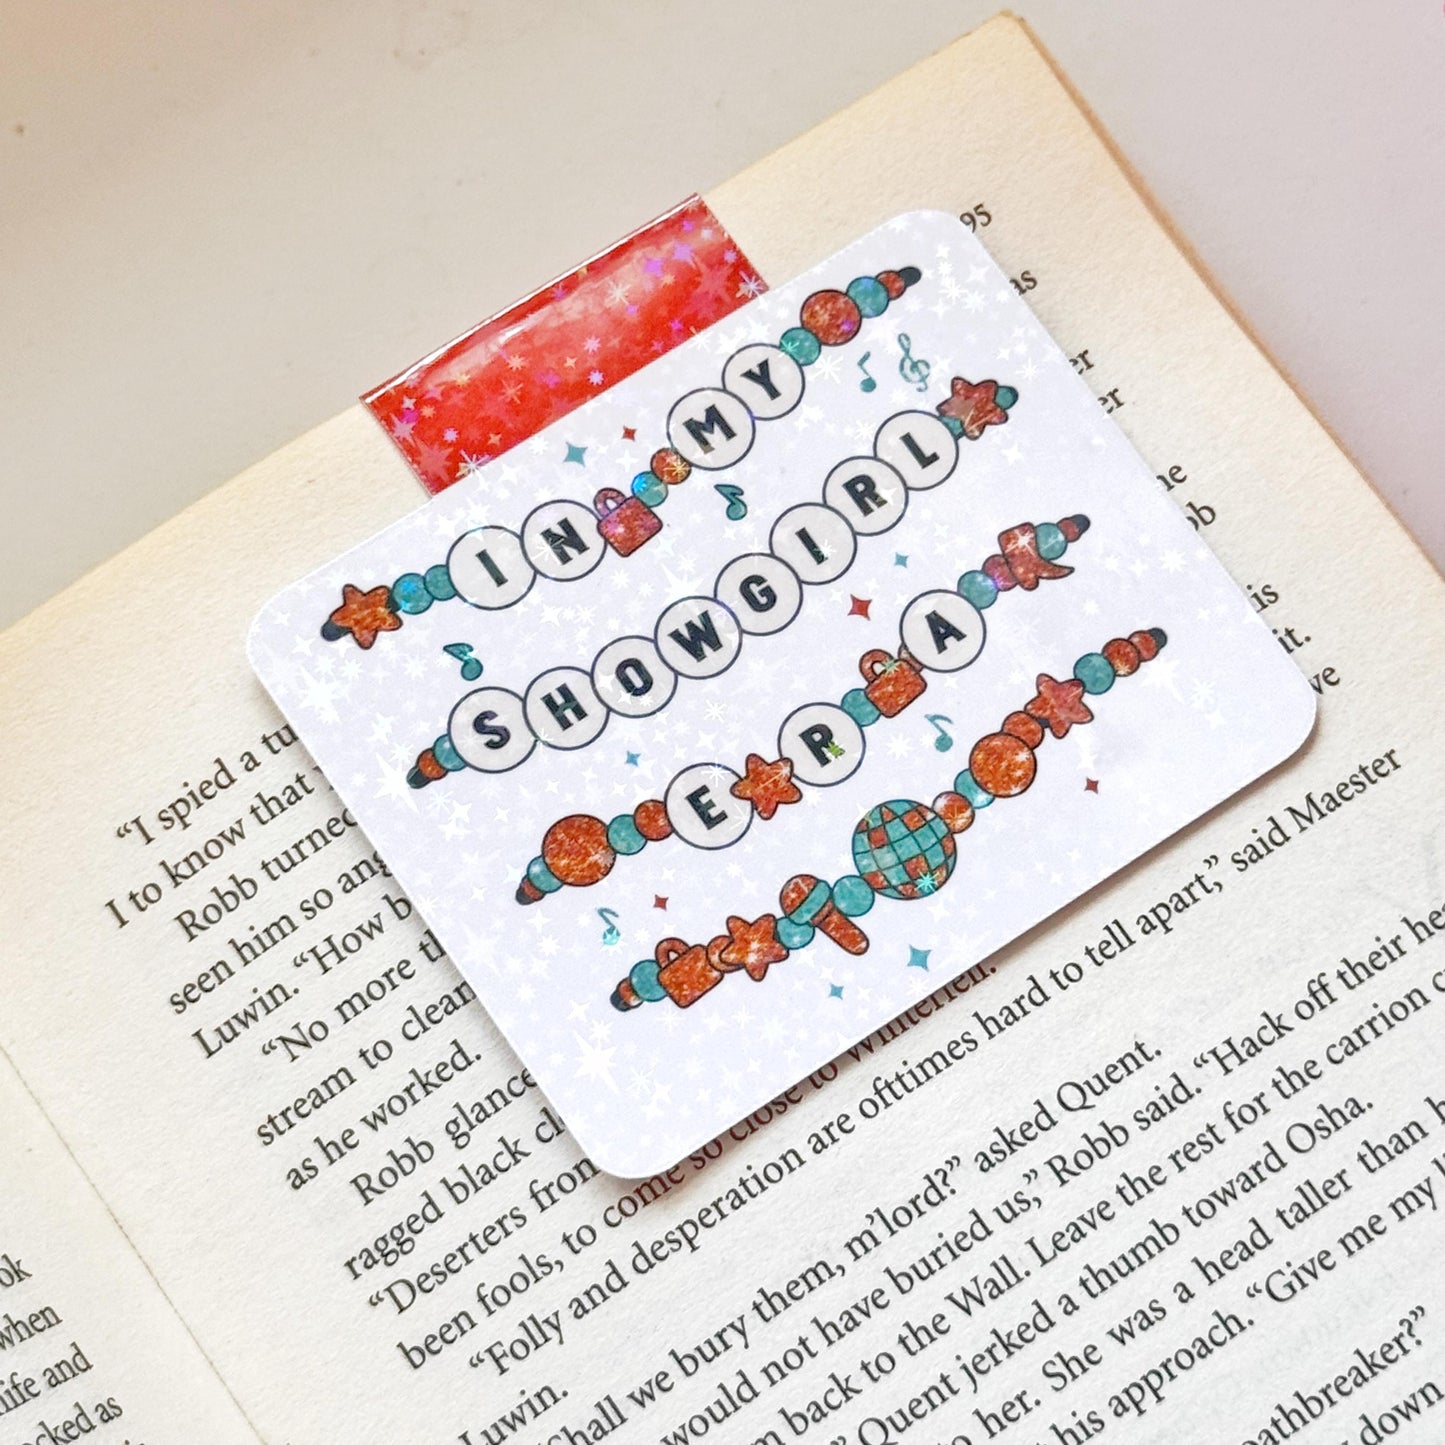 IN MY
SHOWGIRL
ERA
95
as
er
er
ne
ob
is
it.
ve
“I spied a tu
I to know that
Robb turned
seen him so ang
Luwin. “How b
“No more th
stream to clean
as he worked.
Robb glance
ragged black cl
“Deserters from
been fools, to come so close to Winterfell.”
“Folly and desperation are ofttimes hard to tell apart,” said Maester
Luwin.
“Shall we bury them, m’lord?” asked Quent.
would not have buried us,” Robb said. “Hack off their hea
m back to the Wall. Leave the rest for the carrion c
” Quent jerked a thumb toward Osha.
to her. She was a head taller than h
t his approach. “Give me my l
pathbreaker?”
y down
ok
when
life and
ocked as